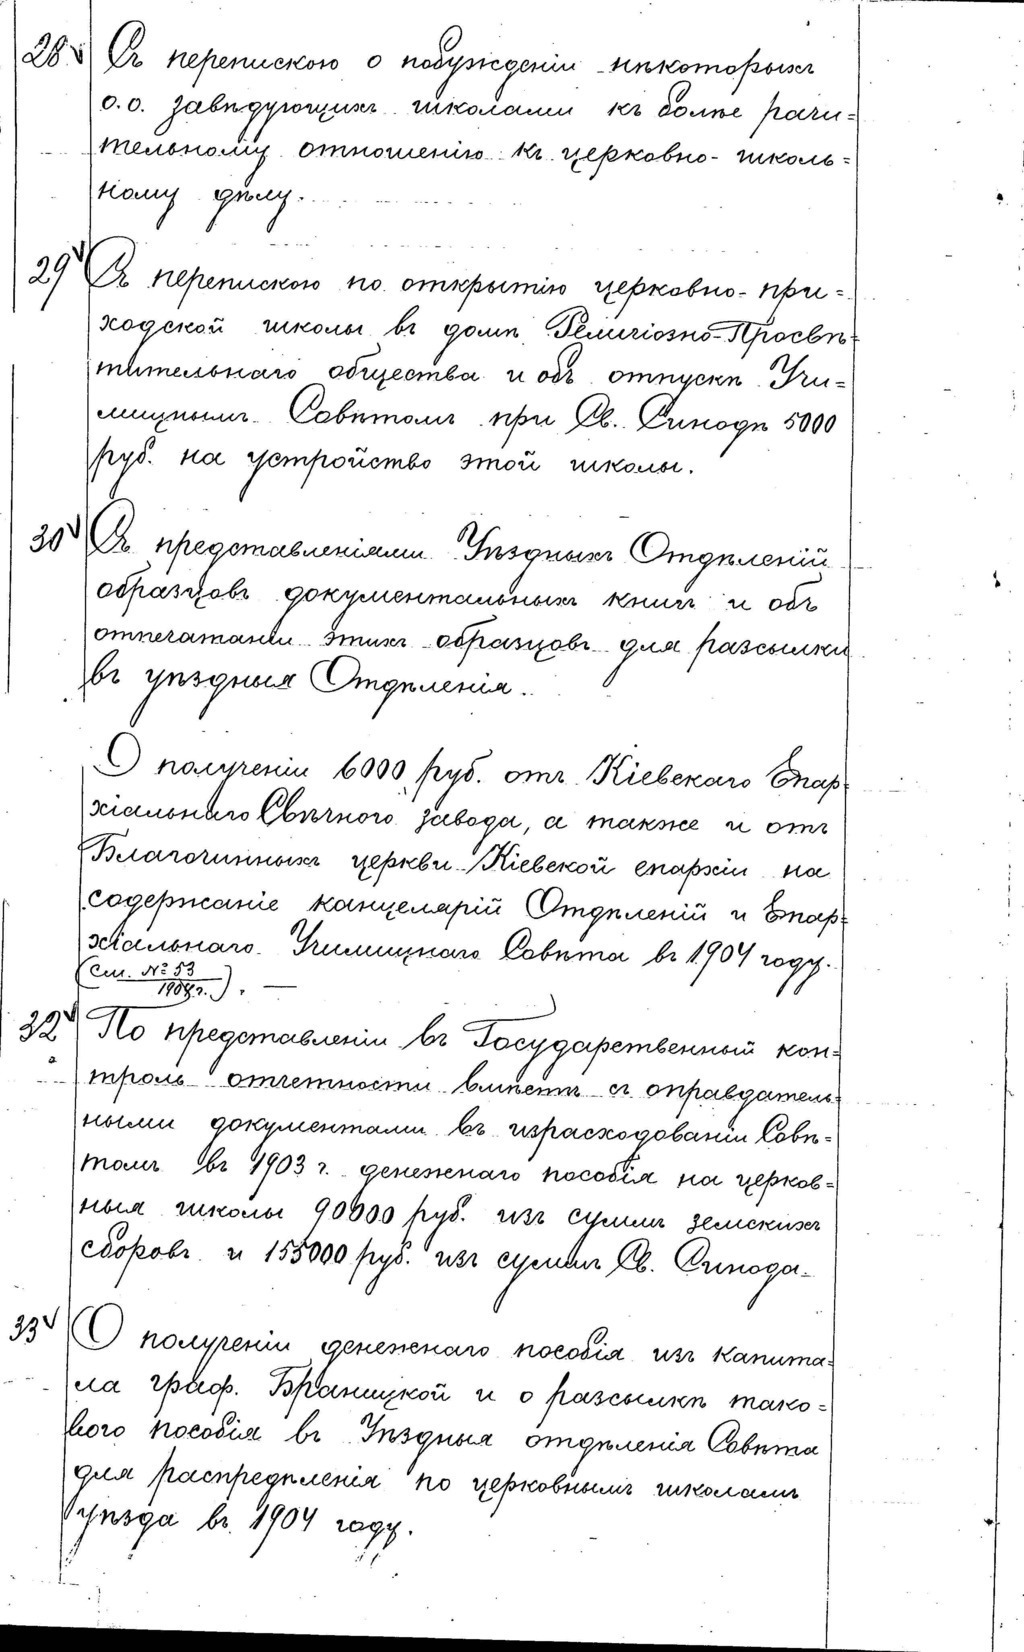 28 Съ перепискою о побужденіи нѣкоторыхъ
о.о. завѣдующихъ школами къ болѣе рачи=
тельному отношенію къ церковно-школь=
ному дѣлу.
29 Съ перепискою по открытію церковно-при=
ходской школы въ домѣ Религіозно-Просвѣ=
тительнаго общества и объ отпускѣ Учи=
лищнымъ Совѣтомъ при Св. Синодѣ 5000
руб. на устройство этой школы.
30 Съ представленіями Уѣздныхъ Отдѣленій
образцовъ документальныхъ книгъ и объ
отпечатаніи этихъ образцовъ для разсылки
въ уѣздныя Отдѣленія.
О полученіи 6000 руб. отъ Кіевскаго Епар=
хіальнаго Свѣчного завода, а также и отъ
Благочинныхъ церкви Кіевской епархіи на
содержаніе канцелярій Отдѣленій и Епар=
хіальнаго Училищнаго Совѣта въ 1904 году.
(см. № 53
1904 г.). —
32 По представленіи въ Государственный кон=
троль отчетности вмѣстѣ съ оправдатель=
ными документами въ израсходованіи Совѣ=
томъ въ 1903 г. денежнаго пособія на церков=
ныя школы 90000 руб. изъ суммъ земскихъ
сборовъ и 155000 руб. изъ суммъ Св. Синода.
33 О полученіи денежнаго пособія изъ капита=
ла граф. Браницкой и о разсылкѣ тако=
вого пособія въ Уѣздныя отдѣленія Совѣта
для распредѣленія по церковнымъ школамъ
уѣзда въ 1904 году.